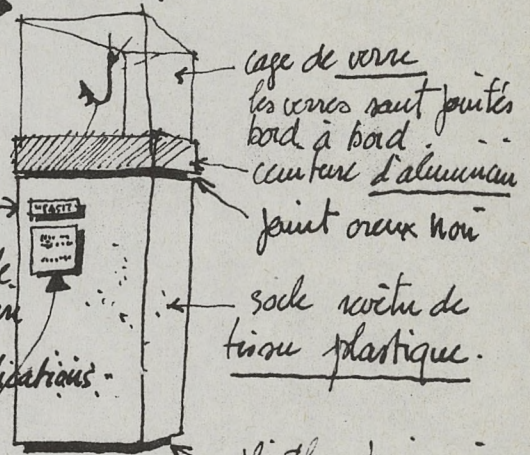 cage de verre
les verres sont jointés
bord à bord.
ceinture d'aluminium
joint creux noir
socle revêtu de
tissu plastique.